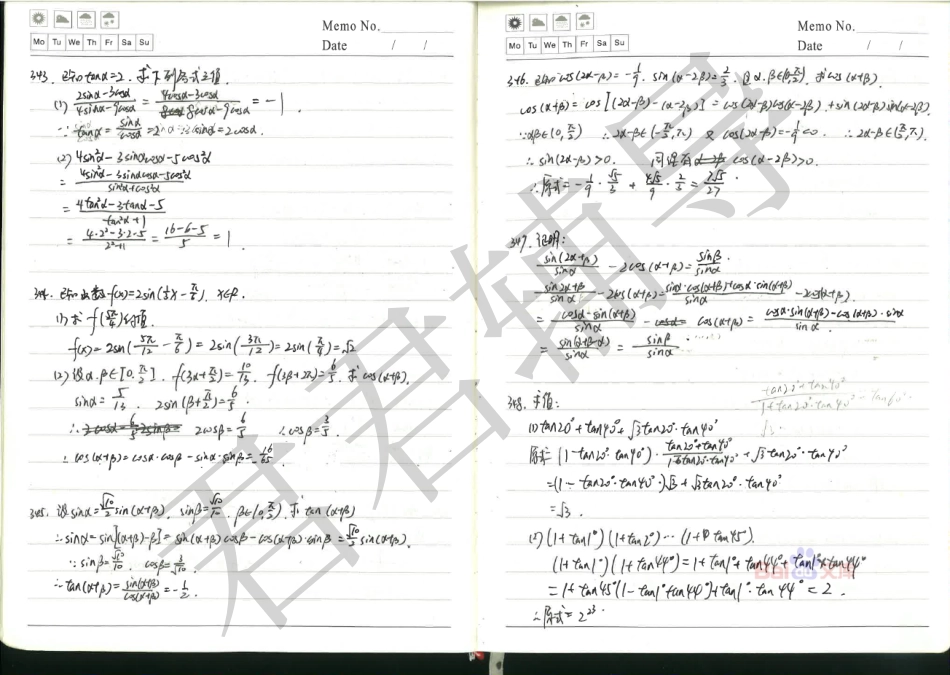 Memo No.
Mo Tu We Th Fr Sa Su
Date / /
343. 已知tanα=2. 求下列各式之值.
(1) (2sinα-3cosα)/(4sinα-9cosα) = (4cosα-3cosα)/(8cosα-9cosα) = -1
∵ tanα = sinα/cosα = 2 ∴ sinα = 2cosα.
(2) 4sin²α-3sinαcosα-5cos²α
= (4sin²α-3sinαcosα-5cos²α)/(sin²α+cos²α)
= (4tan²α-3tanα-5)/(tan²α+1)
= (4·2²-3·2-5)/(2²+1) = (16-6-5)/5 = 1.
344. 已知函数f(x)=2sin(⅓x-π/6), x∈R.
(1) 求f(5π/4)的值.
f(x)=2sin(5π/12-π/6)=2sin(3π/12)=2sin(π/4)=√2
(2) 设α.β∈[0,π/2], f(3α+π/2)=10/13, f(3β+2π)=6/5. 求cos(α+β).
sinα=5/13. 2sin(β+π/2)=6/5.
∴ 2cosβ=6/5 ∴cosβ=3/5.
∴ cos(α+β)=cosα·cosβ-sinα·sinβ=16/65.
345. 设sinα=√10/2 sin(α+β), sinβ=√10/10, β∈(0,π/2), 求tan(α+β)
∴ sinα=sin[(α+β)-β]=sin(α+β)cosβ-cos(α+β)·sinβ=√10/2 sin(α+β).
∵ sinβ=√10/10, cosβ=3/√10.
∴ tan(α+β)=sin(α+β)/cos(α+β)=-1/2.
Memo No.
Mo Tu We Th Fr Sa Su
Date / /
346. 已知cos(2α-β)=-1/9, sin(α-2β)=2/3, 且α.β∈(0,π/2), 求cos(α+β).
cos(α+β)=cos[(2α-β)-(α-2β)]=cos(2α-β)cos(α-2β)+sin(2α-β)sin(α-2β).
∵αβ∈(0,π/2) ∴2α-β∈(-π/2,π) 又cos(2α-β)=-1/9<0. ∴2α-β∈(π/2,π).
∴ sin(2α-β)>0. 同理有 cos(α-2β)>0.
∴原式=-1/9·√5/3+4√5/9·2/3=7√5/27.
347. 证明:
sin(2α+β)/sinα - 2cos(α+β)=sinβ/sinα.
(sin2α+β)/sinα - 2cos(α+β)=(sinα·cos(α+β)+cosα·sin(α+β))/sinα - 2cos(α+β).
= cosα·sin(α+β)/sinα - cos(α+β) = (cosα·sin(α+β)-cos(α+β)·sinα)/sinα.
= sin(α+β-α)/sinα = sinβ/sinα.
348. 求值:
(tan20°+tan40°)/(1-tan20°·tan40°)=tan60°
√3
(1) tan20°+tan40°+√3tan20°·tan40°
原式=(1-tan20°·tan40°)·(tan20°+tan40°)/(1-tan20°·tan40°)+√3tan20°·tan40°
=(1-tan20°·tan40°)√3+√3tan20°·tan40°
=√3.
(2) (1+tan1°)(1+tan2°)…(1+tan45°).
(1+tan1°)(1+tan44°)=1+tan1°+tan44°+tan1°×tan44°
=1+tan45°(1-tan1°tan44°)+tan1°·tan44°=2.
∴原式=2²³.
君君辅导
Bai 文库